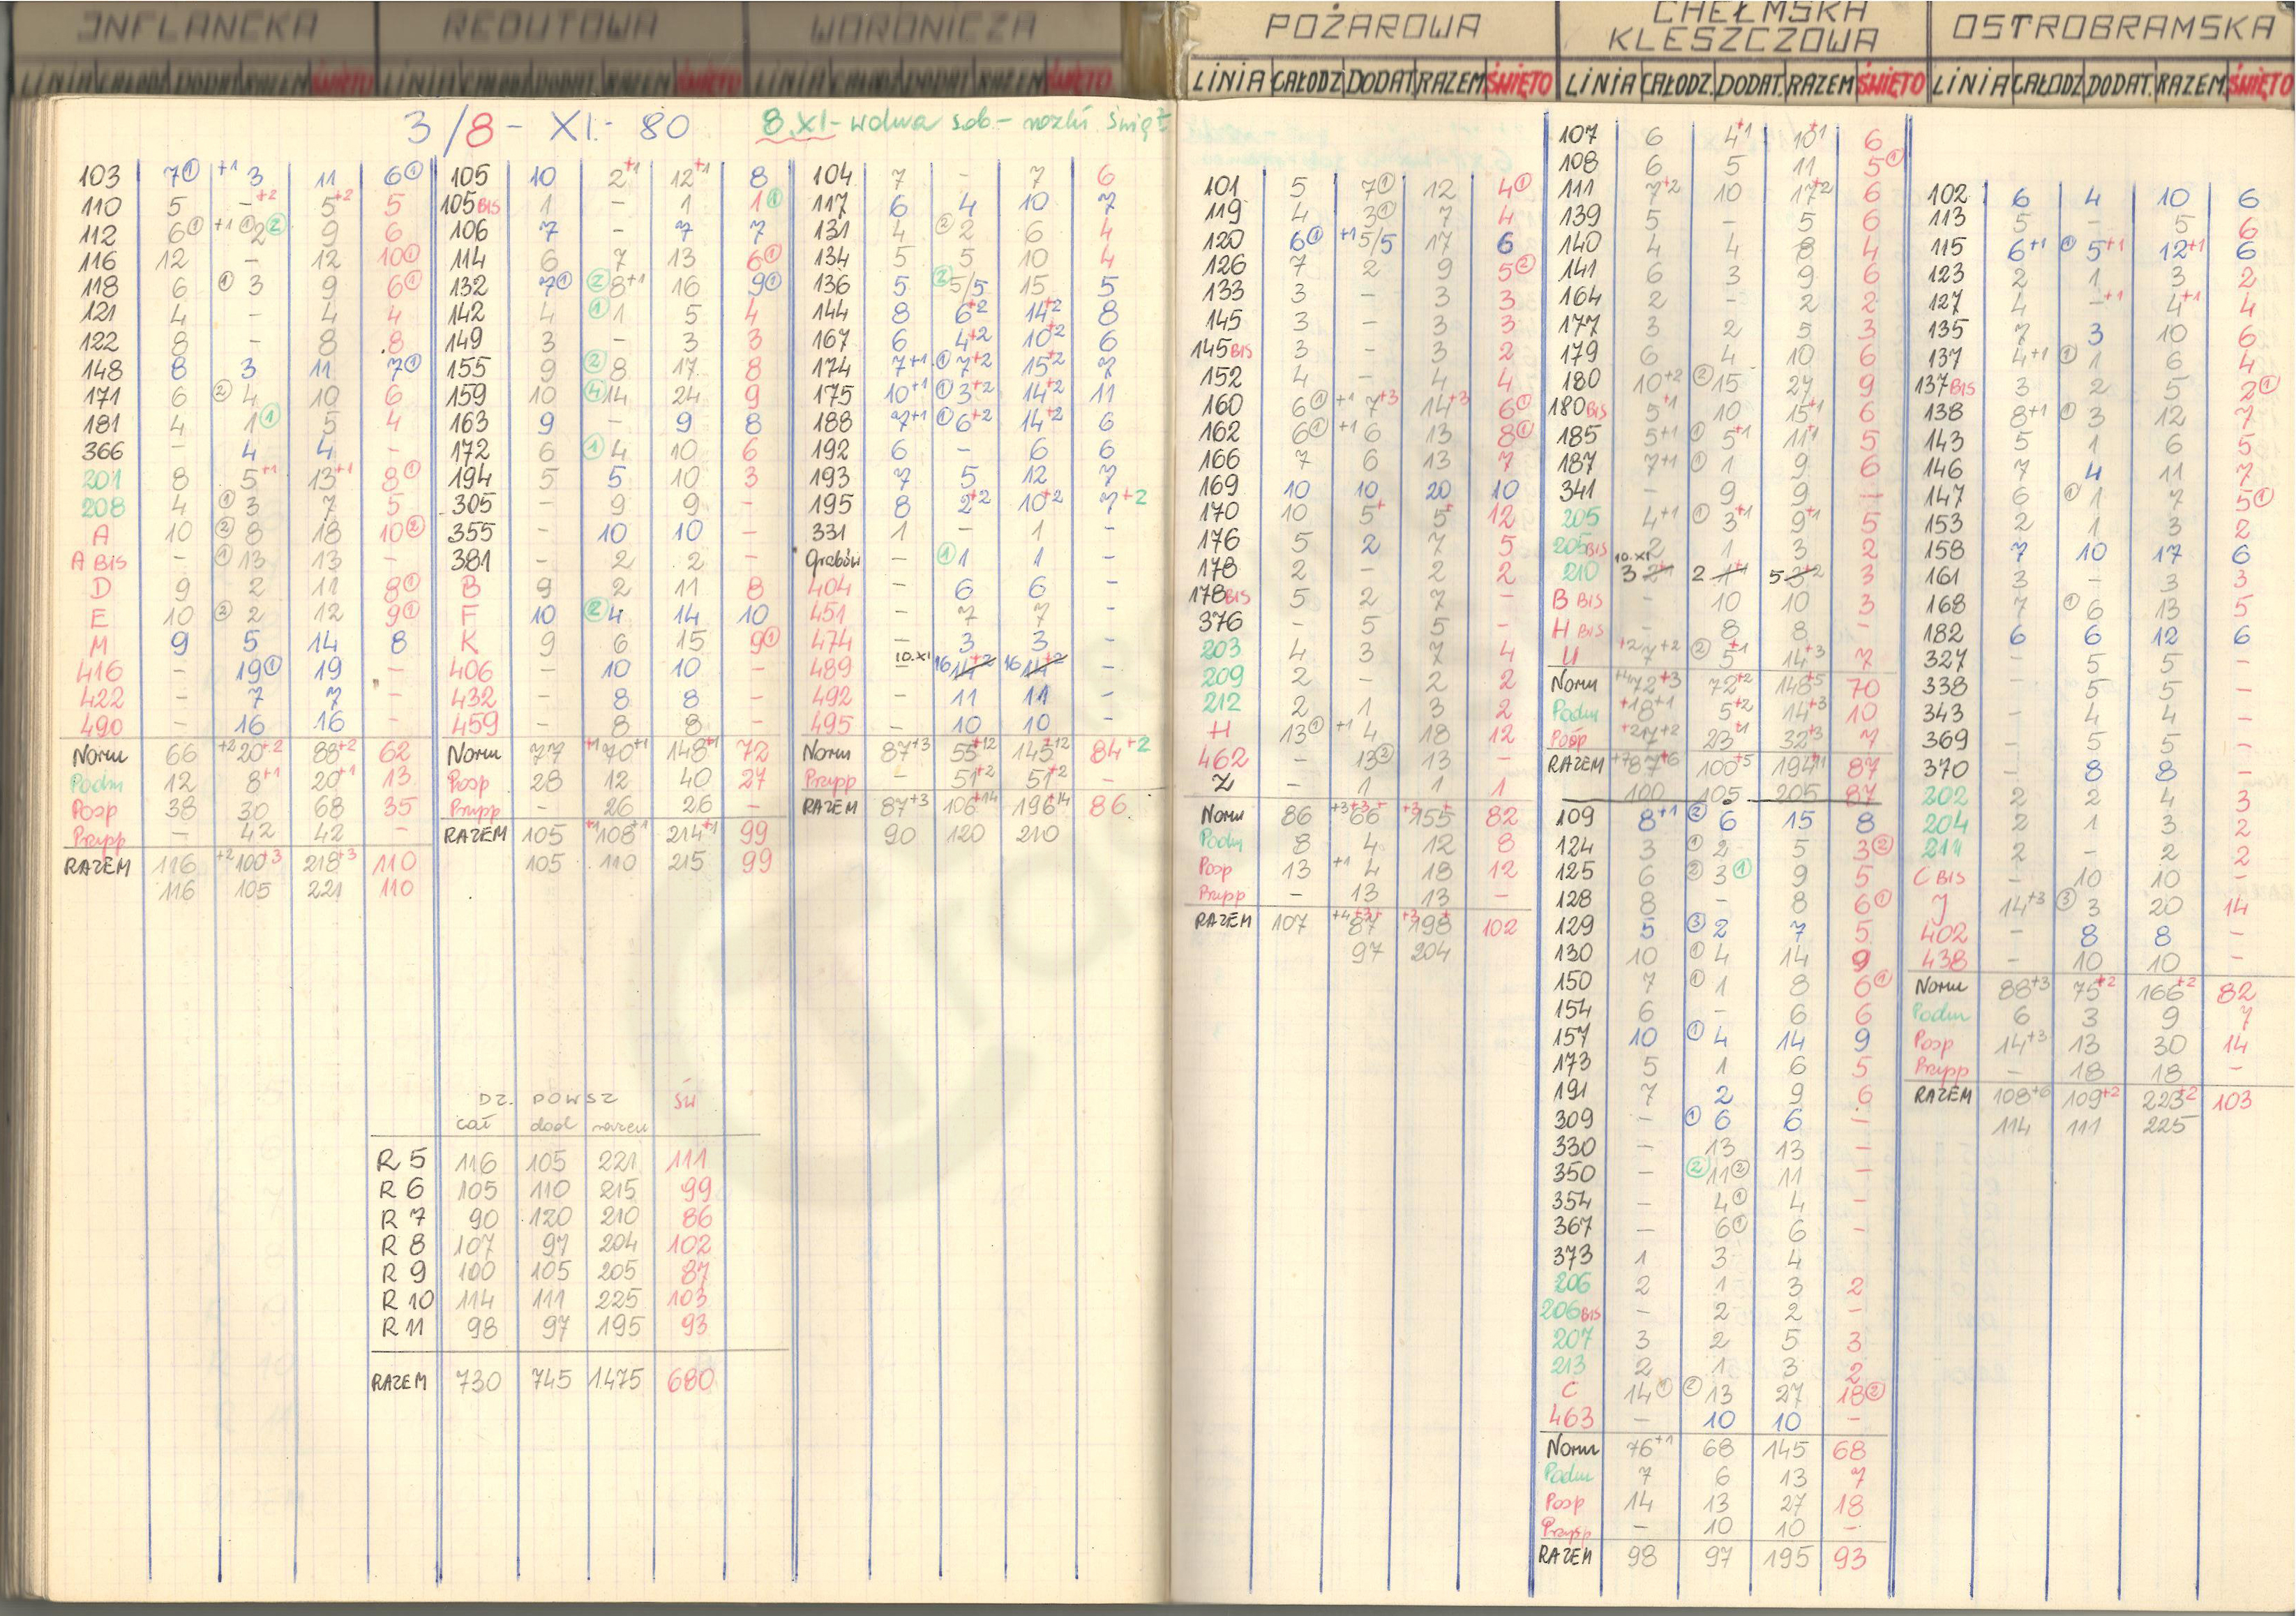 INFLANCKA REDUTOWA WORONICZA POŻAROWA CHEŁMSKA KLESZCZOWA OSTROBRAMSKA
LINIA CAŁODZ DODAT RAZEM ŚWIĘTO LINIA CAŁODZ DODAT RAZEM ŚWIĘTO LINIA CAŁODZ DODAT RAZEM ŚWIĘTO LINIA CAŁODZ DODAT RAZEM ŚWIĘTO LINIA CAŁODZ. DODAT. RAZEM ŚWIĘTO LINIA CAŁODZ DODAT. RAZEM. ŚWIĘTO
3/8 - XI.- 80 8.XI - wolna sob -
103 7① +1 3 11 6①
110 5 -+2 5+2 5
112 6① +1 ①2② 9 6
116 12 - 12 10①
118 6 ①3 9 6①
121 4 - 4 4
122 8 - 8 8
148 8 3 11 7①
171 6 ②4 10 6
181 4 1① 5 4
366 - 4 4 -
201 8 5+1 13+1 8①
208 4 ①3 7 5
A 10 ②8 18 10②
A BIS - ①13 13 -
D 9 2 11 8①
E 10 ②2 12 9①
M 9 5 14 8
416 - 19① 19 -
422 - 7 7 -
490 - 16 16 -
Norm 66 +2 20+2 88+2 62
Podm 12 8+1 20+1 13
Posp 38 30 68 35
Przysp - 42 42 -
RAZEM 116 +2 100+3 218+3 110
116 105 221 110
105 10 2+1 12+1 8
105 BIS 1 - 1 1①
106 7 - 7 7
114 6 7 13 6①
132 7① ②8+1 16 9①
142 4 ①1 5 4
149 3 - 3 3
155 9 ②8 17 8
159 10 ④14 24 9
163 9 - 9 8
172 6 ①4 10 6
194 5 5 10 3
305 - 9 9 -
355 - 10 10 -
381 - 2 2 -
B 9 2 11 8
F 10 ②4 14 10
K 9 6 15 9①
406 - 10 10 -
432 - 8 8 -
459 - 8 8 -
Norm 77 +1 70+1 148+1 72
Posp 28 12 40 27
Przysp - 26 26 -
RAZEM 105 +1 108+1 214+1 99
105 110 215 99
104 7 - 7 6
117 6 4 10 7
131 4 ②2 6 4
134 5 5 10 4
136 5 ②5/5 15 5
144 8 6+2 14+2 8
167 6 4+2 10+2 6
174 7+1 ①7+2 15+2 7
175 10+1 ①3+2 14+2 11
188 7+1 ①6+2 14+2 6
192 6 - 6 6
193 7 5 12 7
195 8 2+2 10+2 7+2
331 1 - 1 -
Grabów - ①1 1 -
404 - 6 6 -
451 - 7 7 -
474 - 3 3 -
489 10.XI 16 14+2 16 14+2 -
492 - 11 11 -
495 - 10 10 -
Norm 87+3 55+12 145+12 84+2
Przysp - 51+2 51+2 -
RAZEM 87+3 106+14 196+14 86
90 120 210
DZ. POWSZ św
cał dod razem
R 5 116 105 221 111
R 6 105 110 215 99
R 7 90 120 210 86
R 8 107 97 204 102
R 9 100 105 205 87
R 10 114 111 225 103
R 11 98 97 195 93
RAZEM 730 745 1475 680
101 5 7① 12 4①
119 4 3① 7 4
120 6① +1 5/5 17 6
126 7 2 9 5②
133 3 - 3 3
145 3 - 3 3
145 BIS 3 - 3 2
152 4 - 4 4
160 6① +1 7+3 14+3 6①
162 6① +1 6 13 8①
166 7 6 13 7
169 10 10 20 10
170 10 5+ 5+ 12
176 5 2 7 5
178 2 - 2 2
178 BIS 5 2 7 -
376 - 5 5 -
203 4 3 7 4
209 2 - 2 2
212 2 1 3 2
H 13① +1 4 18 12
462 - 13② 13 -
Z - 1 1 1
Norm 86 +3 66 155 82
Podm 8 4 12 8
Posp 13 +1 4 18 12
Przysp - 13 13 -
RAZEM 107 +4 87 198 102
97 204
107 6 4+1 10+1 6
108 6 5 11 5①
111 7+2 10 17+2 6
139 5 - 5 6
140 4 4 8 4
141 6 3 9 6
164 2 - 2 2
177 3 2 5 3
179 6 4 10 6
180 10+2 ②15 27 9
180 BIS 5+1 10 15+1 6
185 5+1 ①5+1 11+1 5
187 7+1 ①1 9 6
341 - 9 9 -
205 4+1 ①3+1 9+1 5
205 BIS 2 1 3 2
210 10.XI 3 2+1 2 1+1 5 3+2 3
B BIS - 10 10 3
H BIS - 8 8 -
U +2 7+2 ②5+1 14+3 7
Norm +4 72+3 72+2 148+5 70
Podm +1 8+1 5+2 14+3 10
Posp +2 7+2 23+1 32+3 7
RAZEM +7 87+6 100+5 194+11 87
100 105 205 87
109 8+1 ②6 15 8
124 3 ①2 5 3②
125 6 ②3① 9 5
128 8 - 8 6①
129 5 ③2 7 5
130 10 ①4 14 9
150 7 ①1 8 6①
154 6 - 6 6
157 10 ①4 14 9
173 5 1 6 5
191 7 2 9 6
309 - ①6 6 -
330 - 13 13 -
350 - ②11② 11 -
354 - 4① 4 -
367 - 6① 6 -
373 1 3 4
206 2 1 3 2
206 BIS - 2 2 -
207 3 2 5 3
213 2 1 3 2
C 14① ②13 27 18②
463 - 10 10 -
Norm 76+1 68 145 68
Podm 7 6 13 7
Posp 14 13 27 18
Przysp - 10 10 -
RAZEM 98 97 195 93
102 6 4 10 6
113 5 - 5 6
115 6+1 ①5+1 12+1 6
123 2 1 3 2
127 4 -+1 4+1 4
135 7 3 10 6
137 4+1 ①1 6 4
137 BIS 3 2 5 2①
138 8+1 ①3 12 7
143 5 1 6 5
146 7 4 11 7
147 6 ①1 7 5①
153 2 1 3 2
158 7 10 17 6
161 3 - 3 3
168 7 ①6 13 5
182 6 6 12 6
327 - 5 5 -
338 - 5 5 -
343 - 4 4 -
369 - 5 5 -
370 - 8 8 -
202 2 2 4 3
204 2 1 3 2
211 2 - 2 2
C BIS - 10 10 -
J 14+3 ③3 20 14
402 - 8 8 -
438 - 10 10 -
Norm 88+3 75+2 166+2 82
Podm 6 3 9 7
Posp 14+3 13 30 14
Przysp - 18 18 -
RAZEM 108+6 109+2 223+2 103
114 111 225